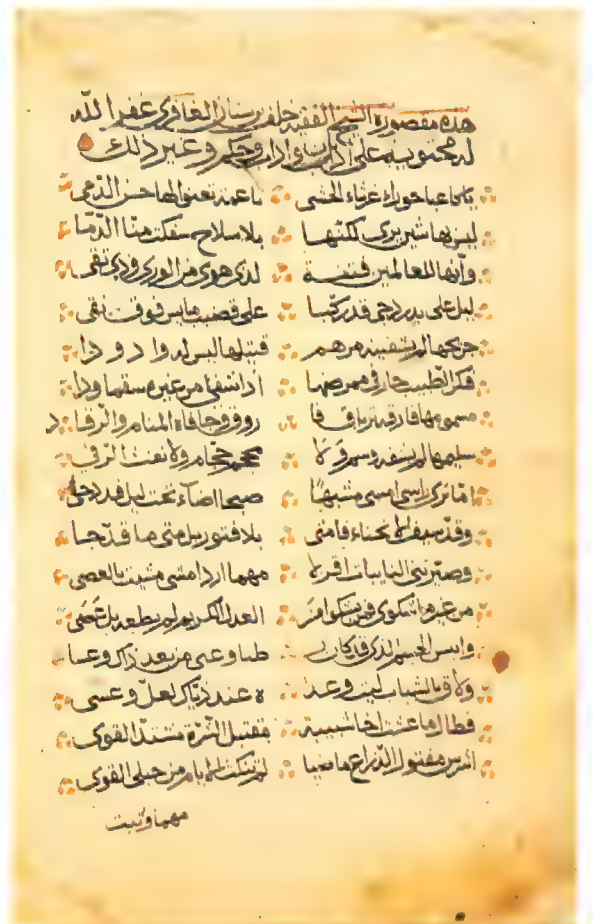 هذه مقصورة الشيخ الفقيه خلف بن سنان الغافري غفر الله
له محتوية على اداب وحكم وغير ذلك
يا كاعبا حوراء غرثاء الحشى ناعمة تعنوا لها حسن الدمى
بلا سلاح سفكت منا الدما
وانها للعالمين فتنة لدى هوى من الورى وذى تقى
ليل على بدر دجى قد ركبا على قضيب مايس فوق نقى
جريحها لم يشفينه مرهم قتيلها ليس له واد ودا
فكر الطبيب حار في ممرضها اذا شفا من غيره سقما ودا
مسمومها فارقه ترياق
سليمها لم يشفه محجم حجام ولا نفث الرقى
اما ترى راسي امسى مشبها صبحا اضاء تحت ليل قد دجى
وقد سيف الانحناء قامتى بلا فتور بل متى ما قد جبا
وصيرتنى النايبات اقزلا مهما اردا مشى مشيت بالعصى
من غيرها شكوى فمن يشكو امر العدل الكريم لم يطعه بل عصى
وايبس الجسم الذى قد كان من بعد ذاك وعسا
ولات بالشباب ليت وعد عند ذياك لعل وعسى
فطال ما عشت اخا شبيبة مقتبل الشرة مشتد القوى
اشرس مفتول الذراع ماضيا لم تنكث الايام من حبلى القوى
مهما وثبت